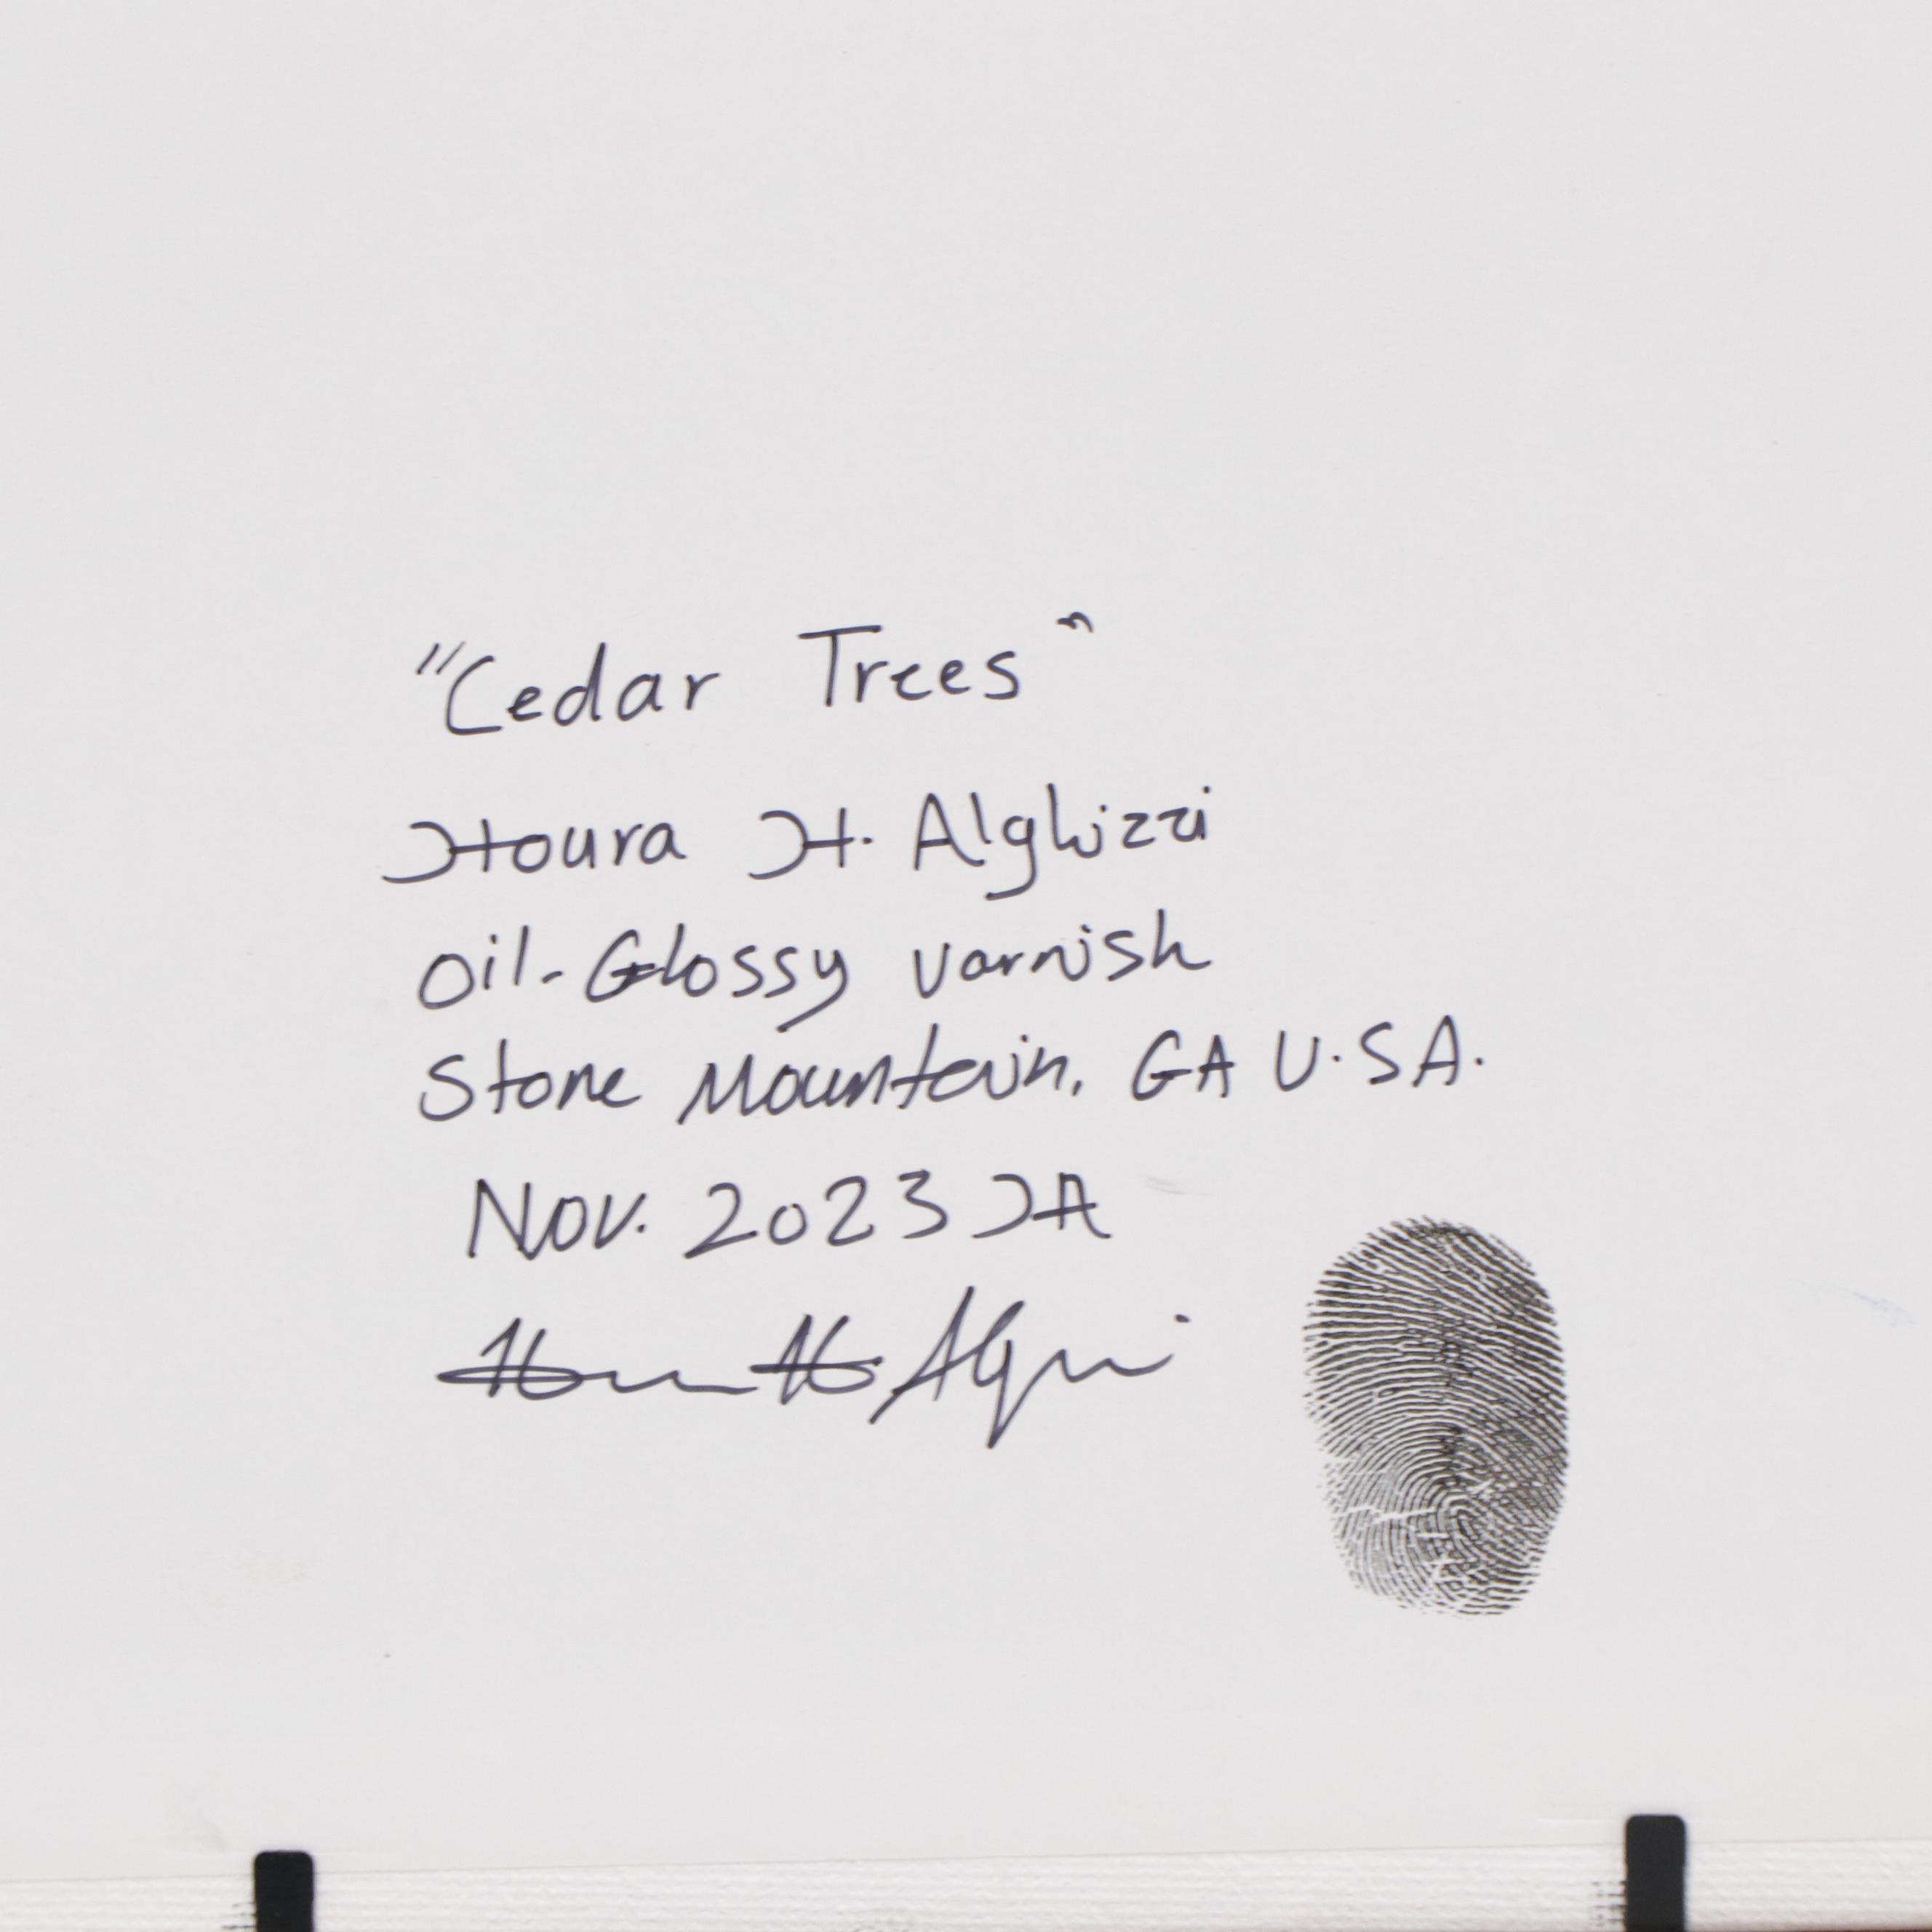 "Cedar Trees"
Houra H. Alghizzi
Oil-Glossy varnish
Stone Mountain, GA U.S.A.
Nov. 2023 HA